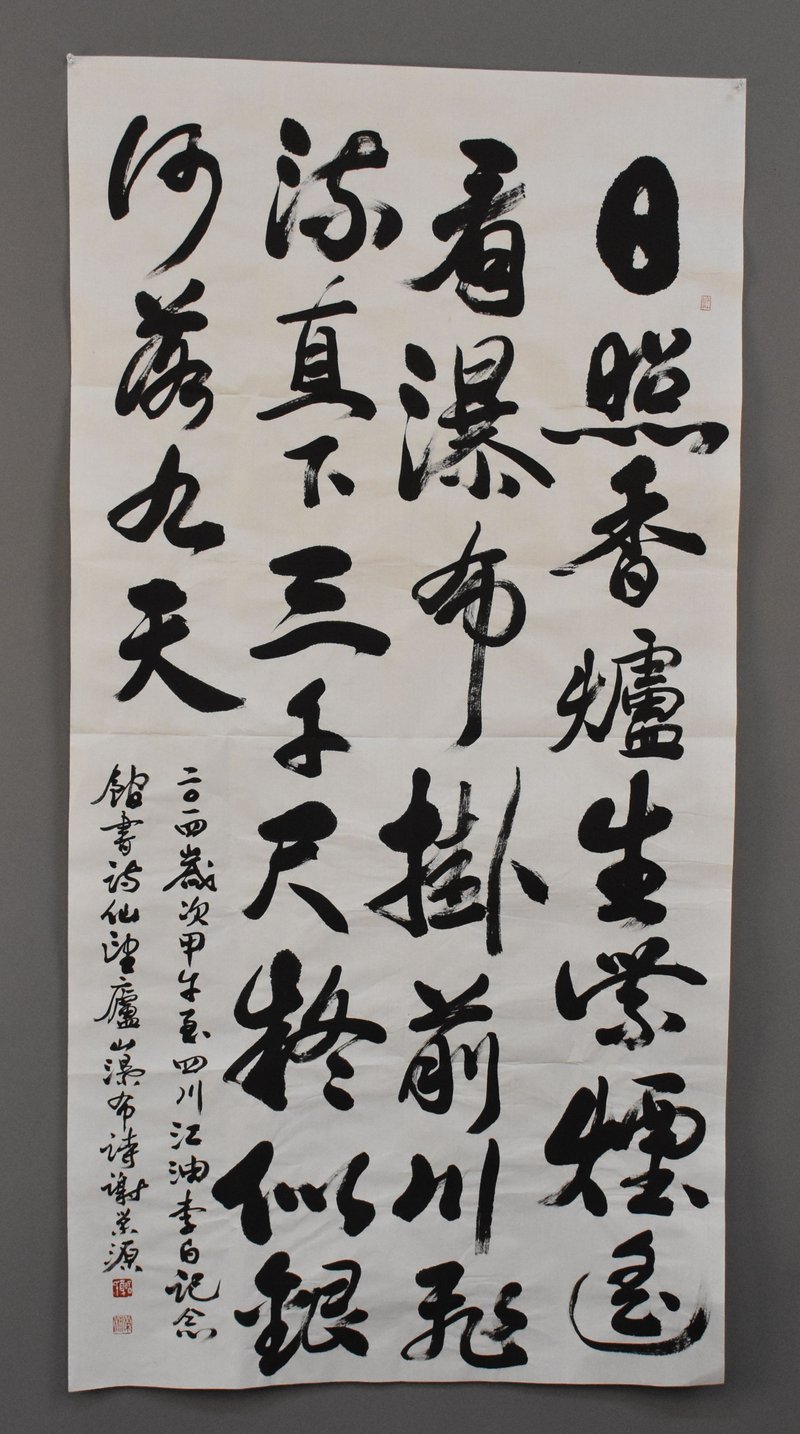 日照香爐生紫煙遙
看瀑布掛前川飛
流直下三千尺疑似銀
河落九天
二〇一四歲次甲午夏四川江油李白記念
館書詩仙望廬山瀑布詩謝榮源